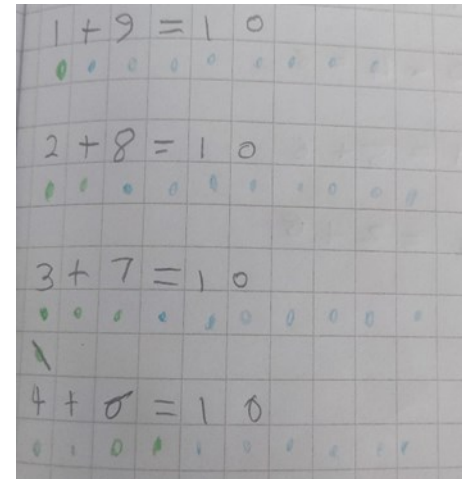 1 + 9 = 10
2 + 8 = 10
3 + 7 = 10
4 + 6 = 10